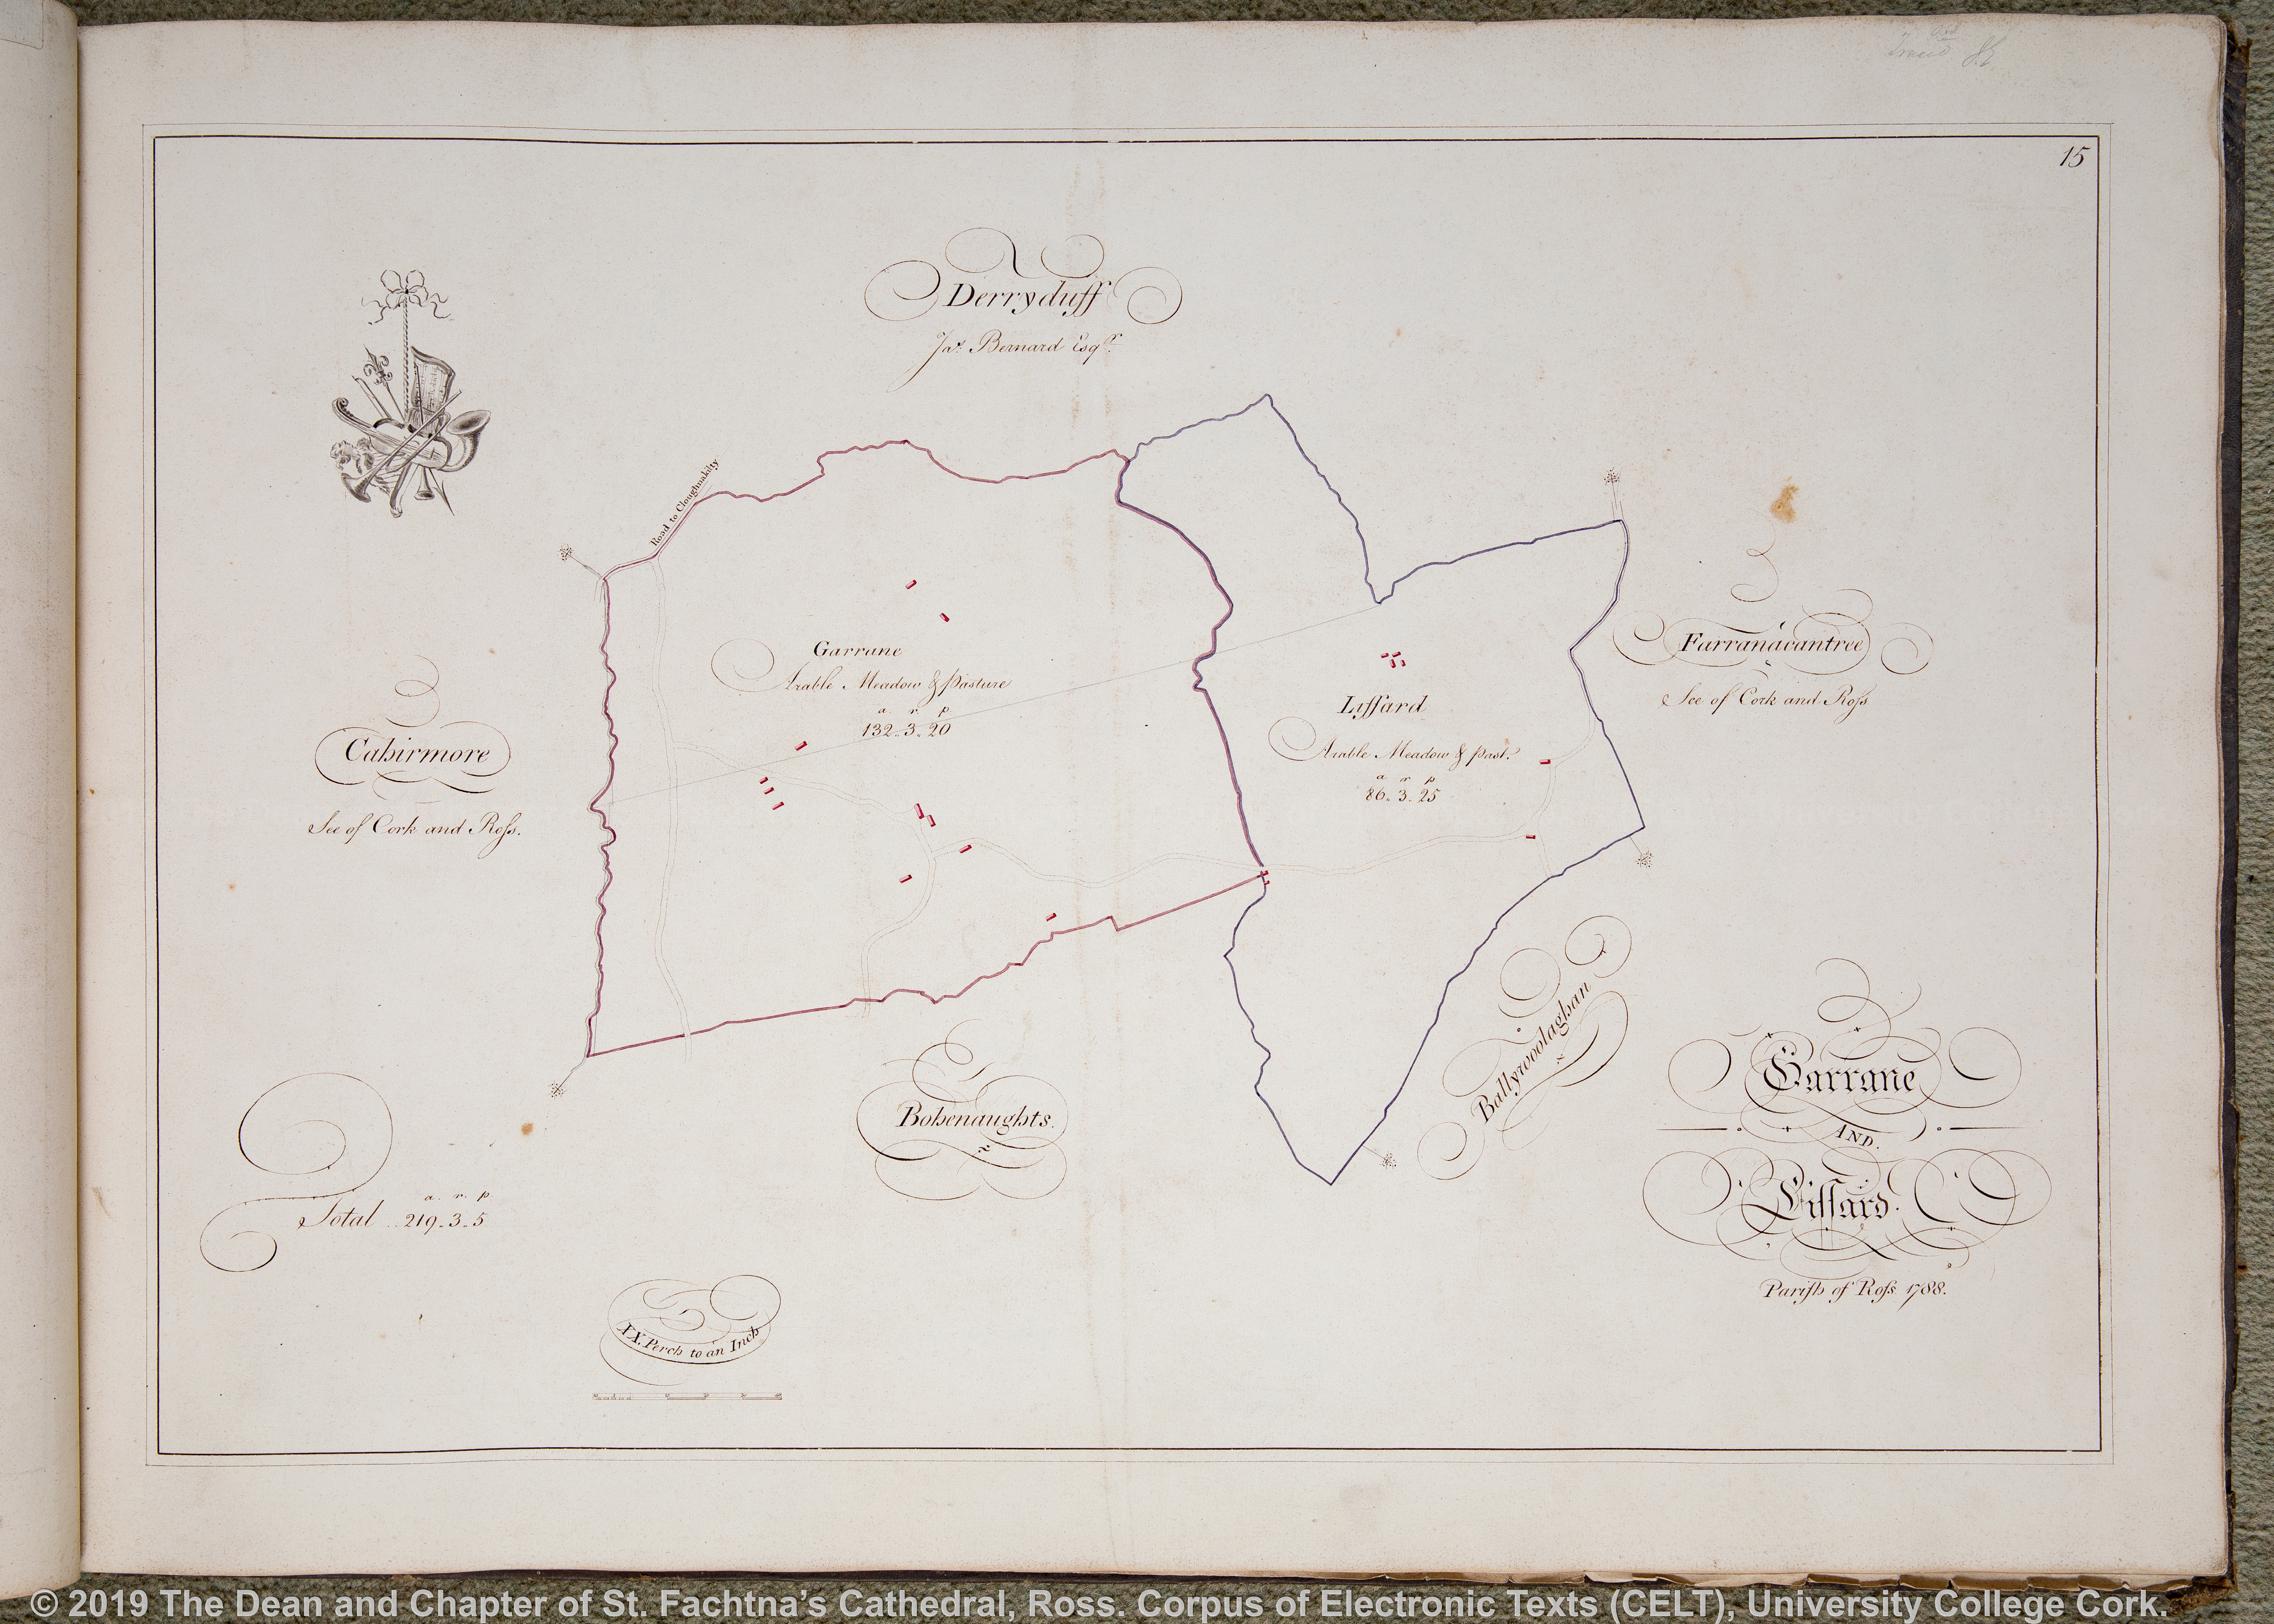 15
Derryduff
Jas. Bernard Esqr.
Road to Cloughnakilty
Garrane
Arable Meadow & Pasture
a. r. p
132.. 3.. 20
Farranacantree
See of Cork and Roſs
Liſsard
Arable Meadow & Past.
a r p
86.. 3.. 25
Cahirmore
See of Cork and Roſs.
Ballywoolaghan
Bohenaughts.
Garrane
AND.
Liſsard.
Pariſh of Roſs. 1788.
a. r. p
Total .. 219.. 3.. 5
XX. Perch to an Inch
© 2019 The Dean and Chapter of St. Fachtna’s Cathedral, Ross. Corpus of Electronic Texts (CELT), University College Cork.